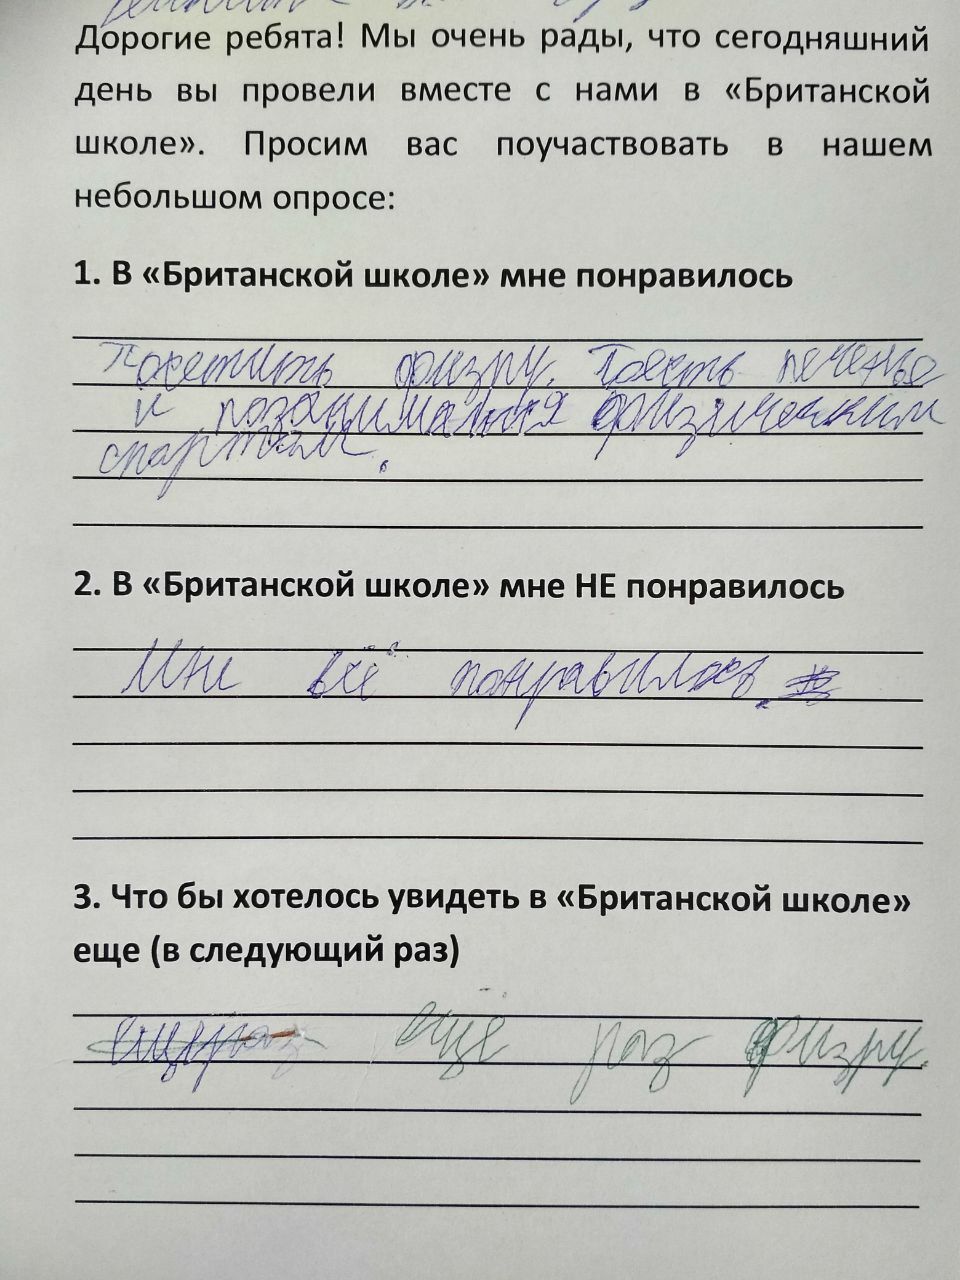 Дорогие ребята! Мы очень рады, что сегодняшний
день вы провели вместе с нами в «Британской
школе». Просим вас поучаствовать в нашем
небольшом опросе:
1. В «Британской школе» мне понравилось
Посетить физру. Поесть печенье
и позаниматься физическим
спартам.
2. В «Британской школе» мне НЕ понравилось
Мне всё понравилось.
3. Что бы хотелось увидеть в «Британской школе»
еще (в следующий раз)
ещё раз физру.